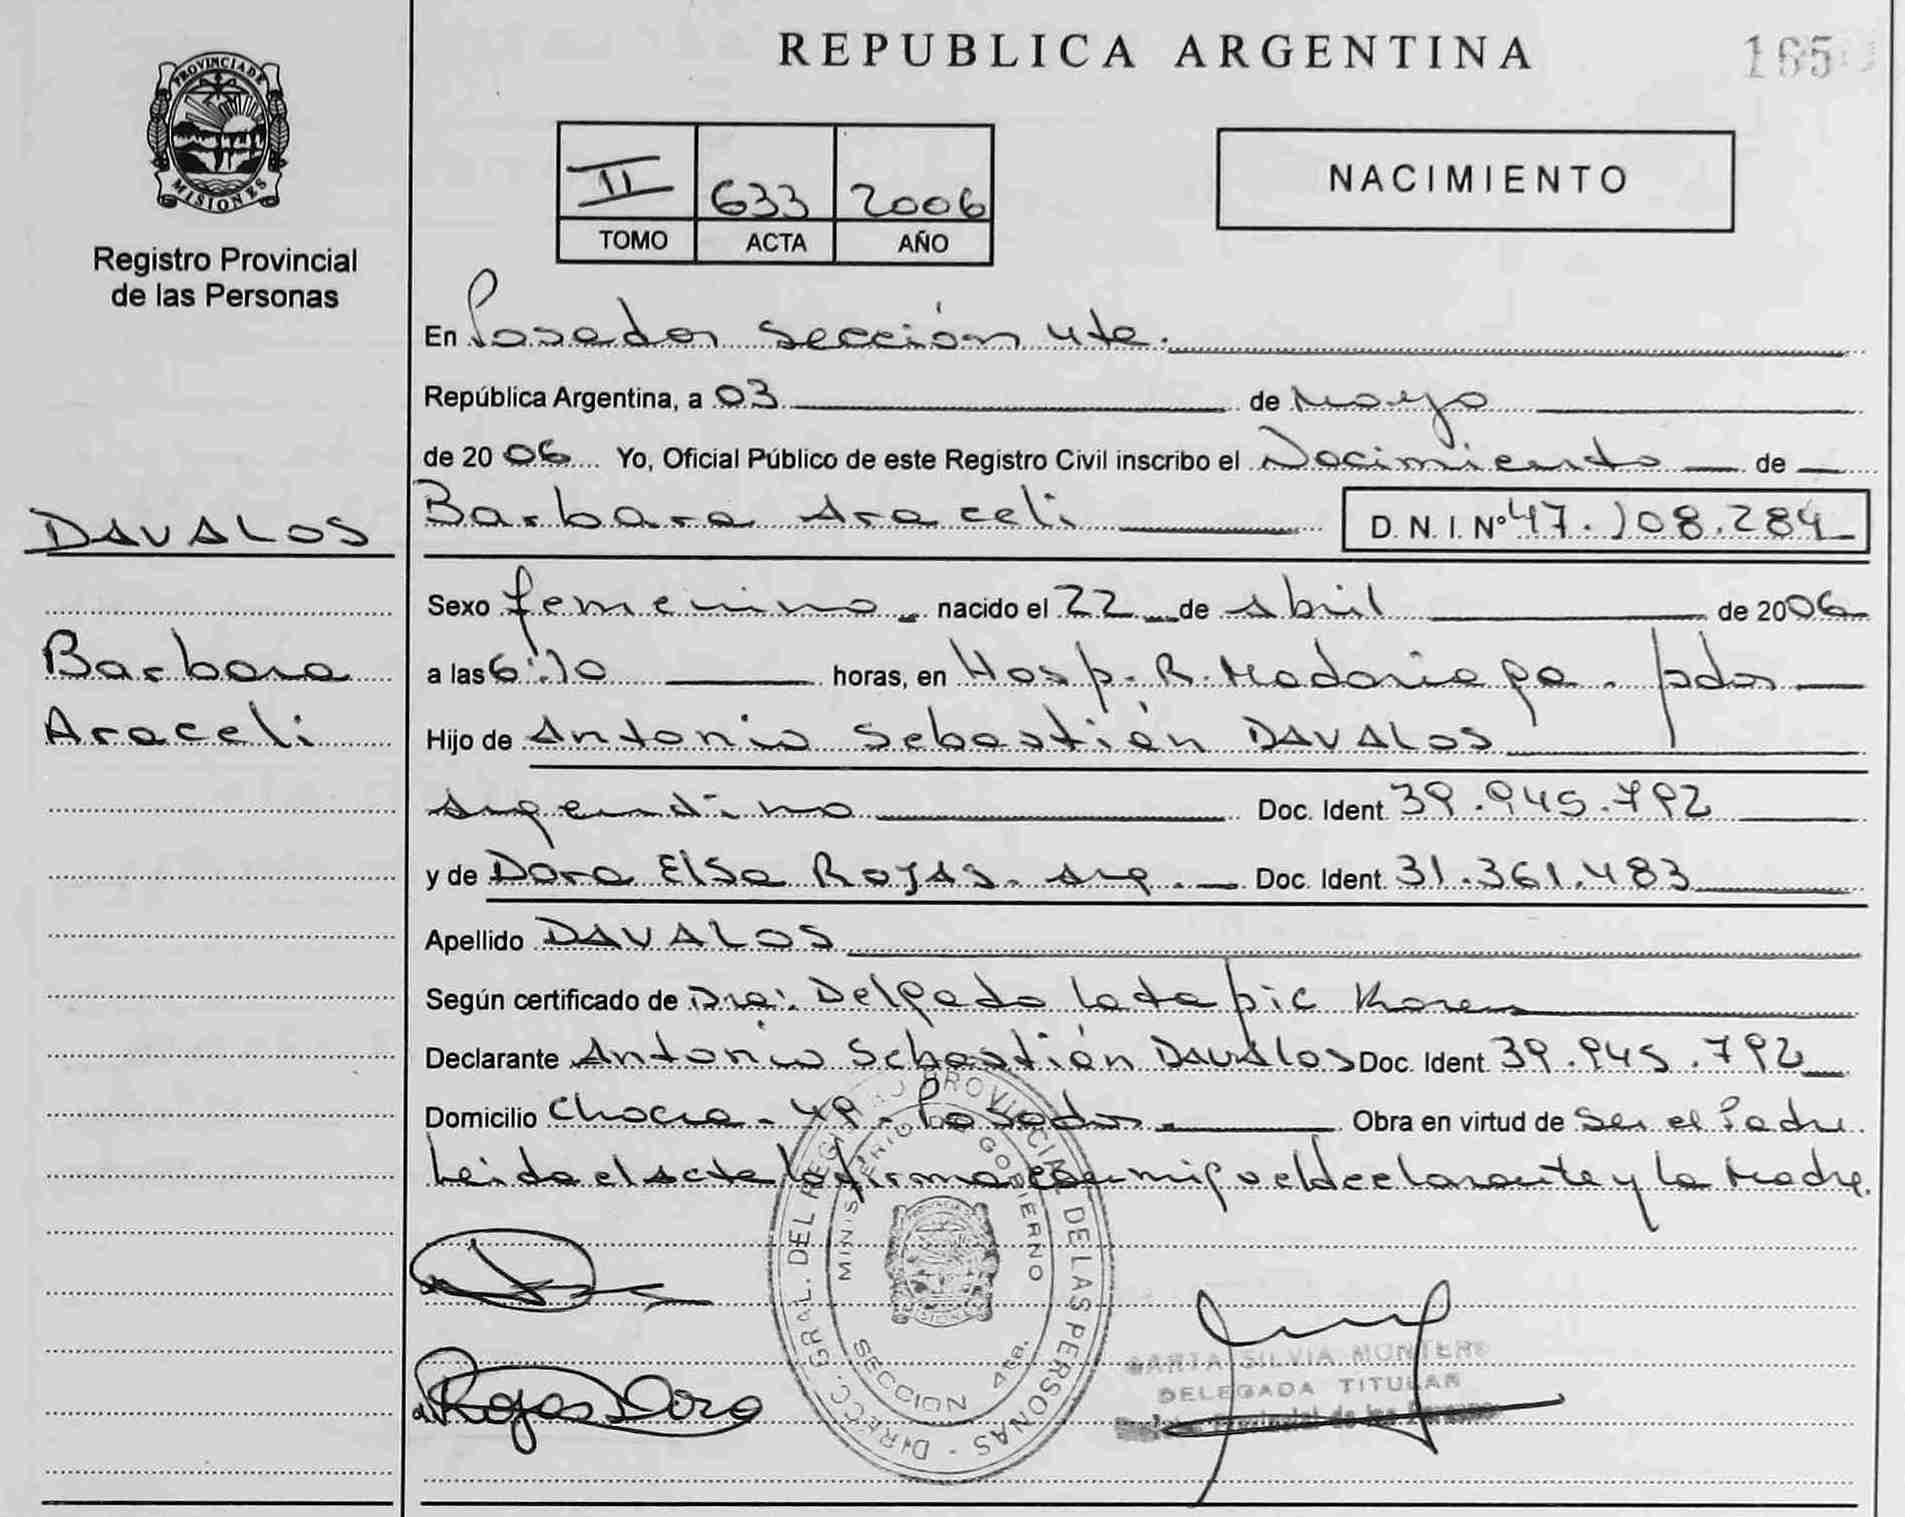 REPUBLICA ARGENTINA
165
PROVINCIA DE
MISIONES
Registro Provincial
de las Personas
II 633 2006
TOMO ACTA AÑO
NACIMIENTO
En Posadas sección 4ta.
República Argentina, a 03 de Mayo
de 2006 Yo, Oficial Público de este Registro Civil inscribo el Nacimiento de
Barbara Araceli D. N. I. Nº 47.108.284
DAVALOS
Barbara
Araceli
Sexo femenino nacido el 22 de Abril de 2006
a las 6:10 horas, en Hosp. R. Madariaga. pdas
Hijo de Antonio Sebastián DAVALOS
Argentino Doc. Ident. 39.945.792
y de Dora Elsa ROJAS. Arg. Doc. Ident. 31.361.483
Apellido DAVALOS
Según certificado de Dra: Delgado Latapic Karen
Declarante Antonio Sebastián DAVALOS Doc. Ident. 39.945.792
Domicilio Chacra - 49 - Posadas. Obra en virtud de Ser el Padre.
Leida el acta la firma conmigo el declarante y la Madre.
DIRECC. GRAL. DEL REGISTRO PROVINCIAL DE LAS PERSONAS -
MINISTERIO DE GOBIERNO
SECCION 4ta.
Rojas Dora
SILVIA MONTERO
DELEGADA TITULAR
Provincial de las Personas